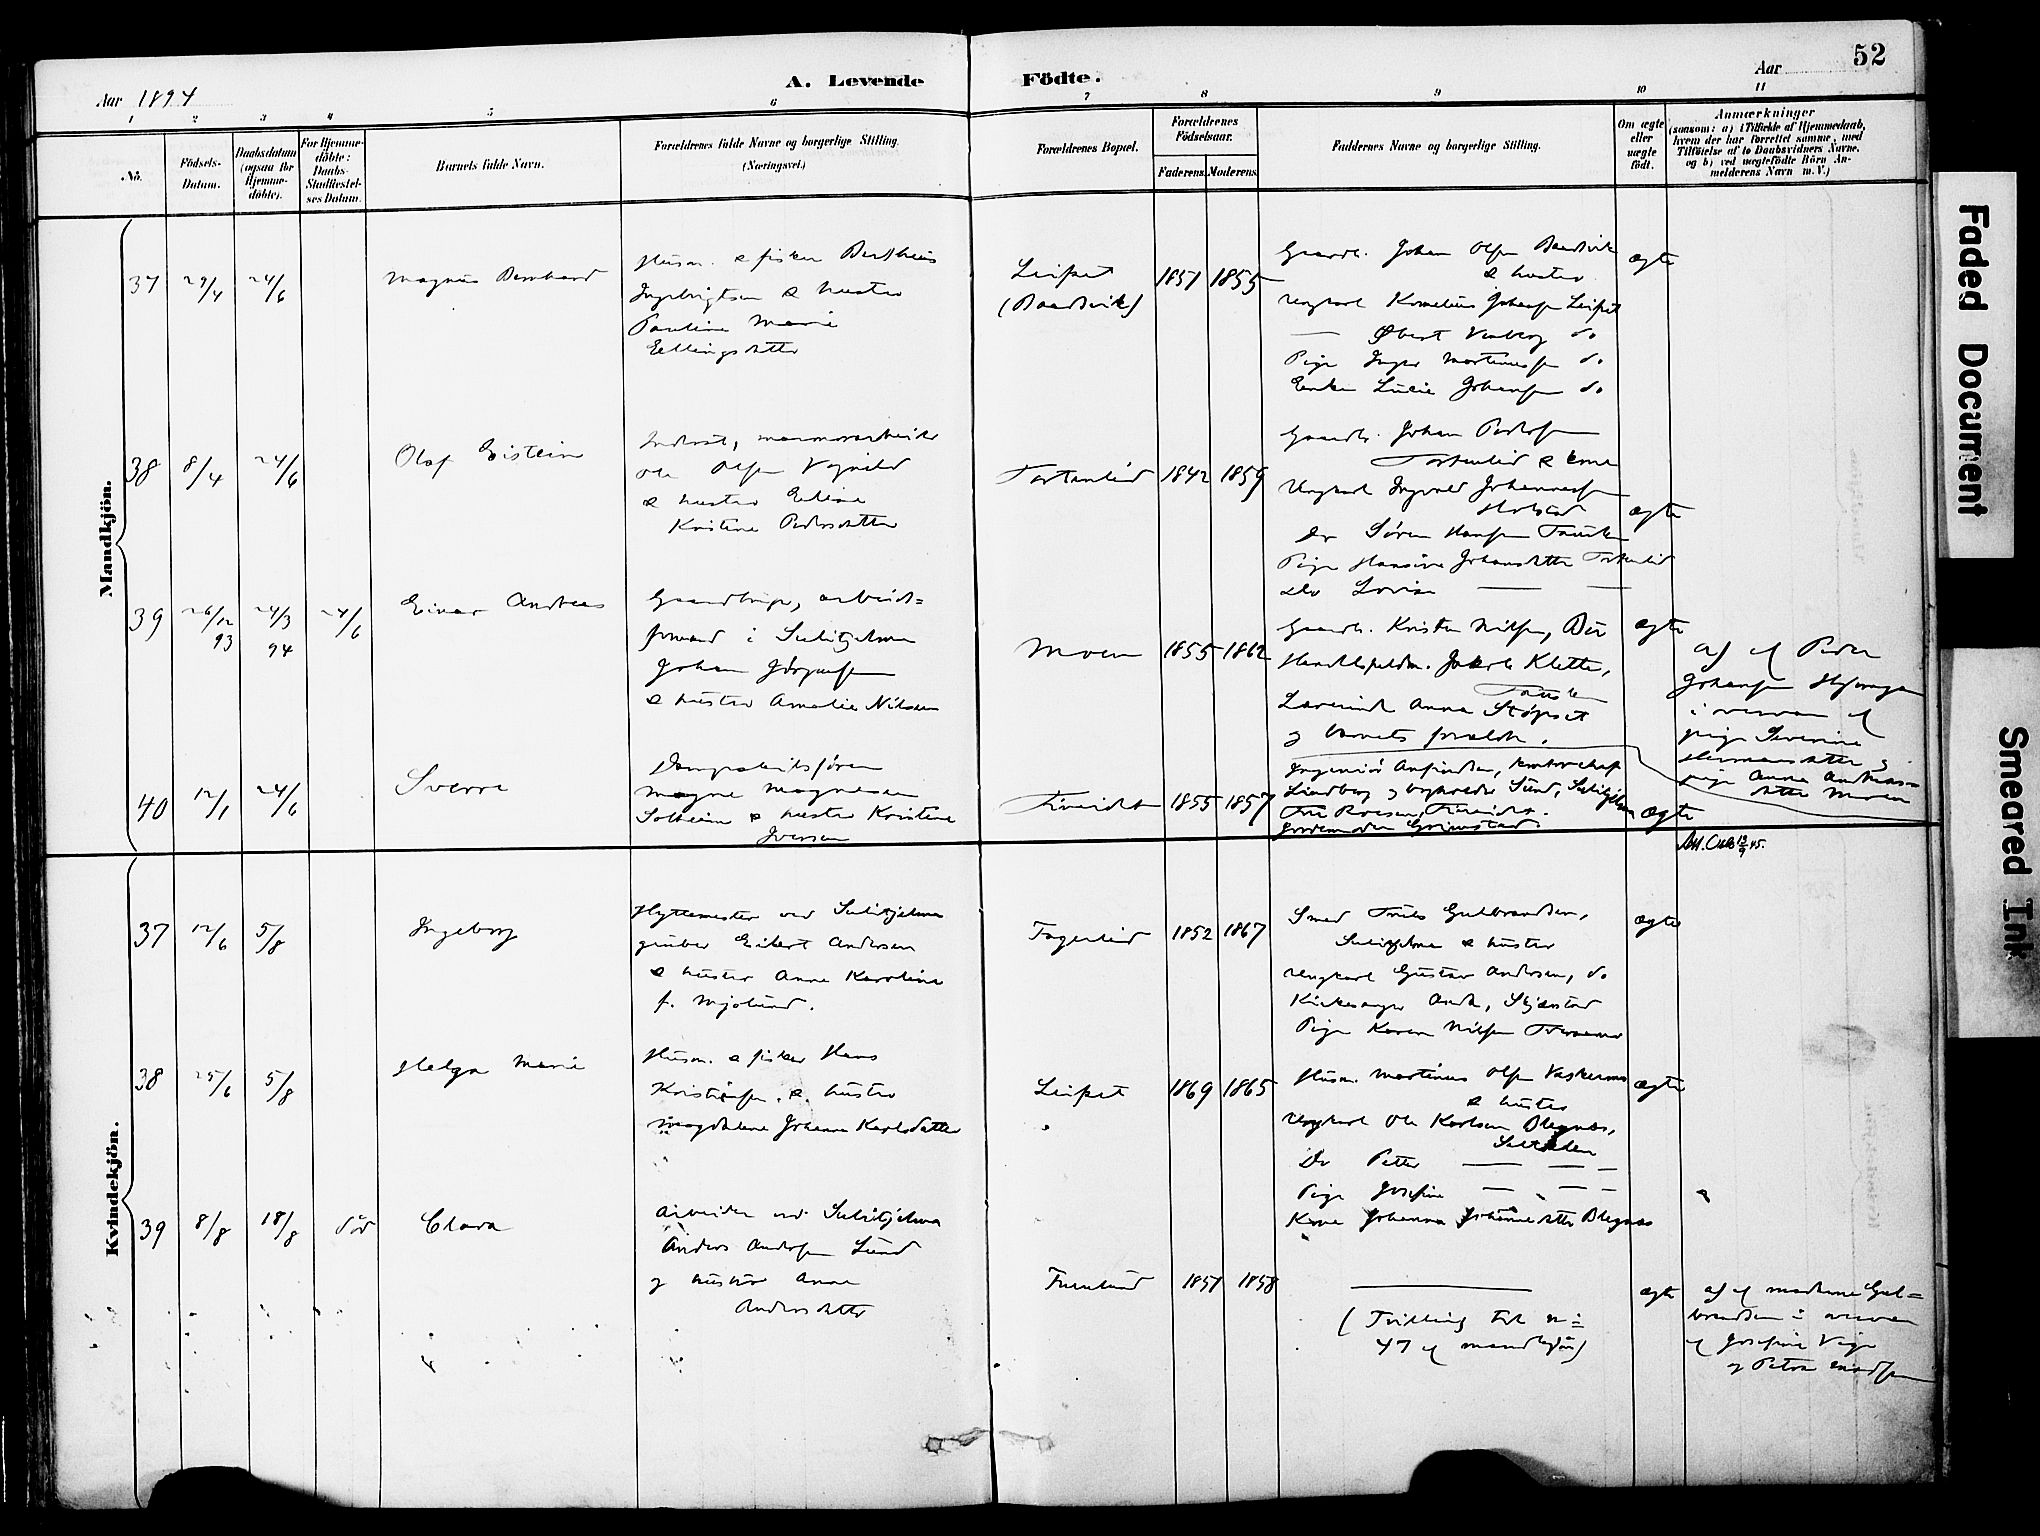 52
Aar 1894
A. Levende Födte.
Aar
1 2 3 4 5 6 7 8 9 10 11
No.
Födsels-Datum.
Daabsdatum (ogsaa for Hjemme-döbte).
For Hjemme-döbte: Daabs-Stadfæstel-ses Datum.
Barnets fulde Navn.
Forældrenes fulde Navne og borgerlige Stilling.
(Næringsvei.)
Forældrenes Bopæl.
Forældrenes Födselsaar.
Faderens. Moderens.
Faddernes Navne og borgerlige Stilling.
Om ægte eller uægte födt.
Anmærkninger
(saasom: a) i Tilfælde af Hjemmedaab,
hvem der har forrettet samme, med
Tilföielse af to Daabsvidners Navne,
og b) ved uægtefödte Börn An-
melderens Navn m. V.)
Mandkjön.
37 29/4 24/6
Magnus Bernhard
Husm. & fisker Bertheus
Ingebrigtsen & hustro
Pauline Marie
Ellingsdatter
Leifset
(Baadsvik)
1851 1855
Gaardb. Johan Olsen Baadsvik
& hustro
Ungkarl Kornelius Johansen Leifset
— Øbert Venberg do
Pige Inger Martinussen do
Enke Lucie Johansen do
ægte
38 8/4 24/6
Olaf Eistein
Inderst, marmorarbeider
Ole Olsen Vognild
& hustro Eline
Kristine Pedersdatter
Tortenlid
1842 1859
Gaardb. Johan Pedersen
Tortenlid & kone
Ungkarl Ingvald Johannessen
Do Søren Hansen Fauske
Pige Hansine Johansdatter Tortenlid
Do Lovise — —
ægte
39 26/12 93 24/3 94 24/6
Einar Andreas
Gaardbruger, arbeids=
formand i Sulitjelma
Johan Jørgensen
& hustro Amalie Nilsen
Moen
1855 1862
Gaardb. Kristen Nilsen, Bö
Handelsfuldm. Jakob Klette,
Fauske
Lærerinde Anna Støpset
og barnets forældre.
ægte
af Peder
Johansen
i overvær af
pige Severine
Hermansdatter &
pige Anna Andreas-
datter Moen
40 12/1 24/6
Sverre
Dampskibsfører
Magne Magnesen
Solheim & hustro Kristine
Iversen
Finneidet
1855 1857
Ingeniör Arfwedson, kontorchef
Lindberg og bogholder Lund, Sulitjelma
Fru Roesen, Finneidet.
Jordemoder Grimstad.
ægte
Att. Oslo 13/9 45.
Kvindekjön.
37 12/6 5/8
Ingeborg
Hyttemester ved Sulitjelma
gruber Eilert Andersen
& hustro Anna Karoline
f. Mjølund.
Fagerlid
1852 1867
Smed Truls Gulbrandsen,
Sulitjelma & hustro
Ungkarl Gustav Andersen, do
Kirkesanger Skjerstad
Pige Karen Nilsen
ægte
38 25/6 5/8
Helga Marie
Husm. & fisker Hans
Kristiansen & hustro
Magdalene Johanna Karlsdatter
Leifset
1869 1865
Husm. Martinus Olsen
& hustro
Ungkarl Ole Karlsen Blegnes,
Saltdalen
Do Petter — — —
Pige Josefine — — —
Kone Johanna Johannesdatter Blegnes
ægte
39 8/8 18/8 død
Clara
Arbeider ved Sulitjelma
Anders Andersen Lund
og hustro Anne
Andersdatter
Furulund
1851 1858
(Tvilling til no
47 af mandkjøn)
ægte
af madame Gul=
brandsen i overvær
af Josefine
og Petra Madsen
Faded Document
Smeared Ink